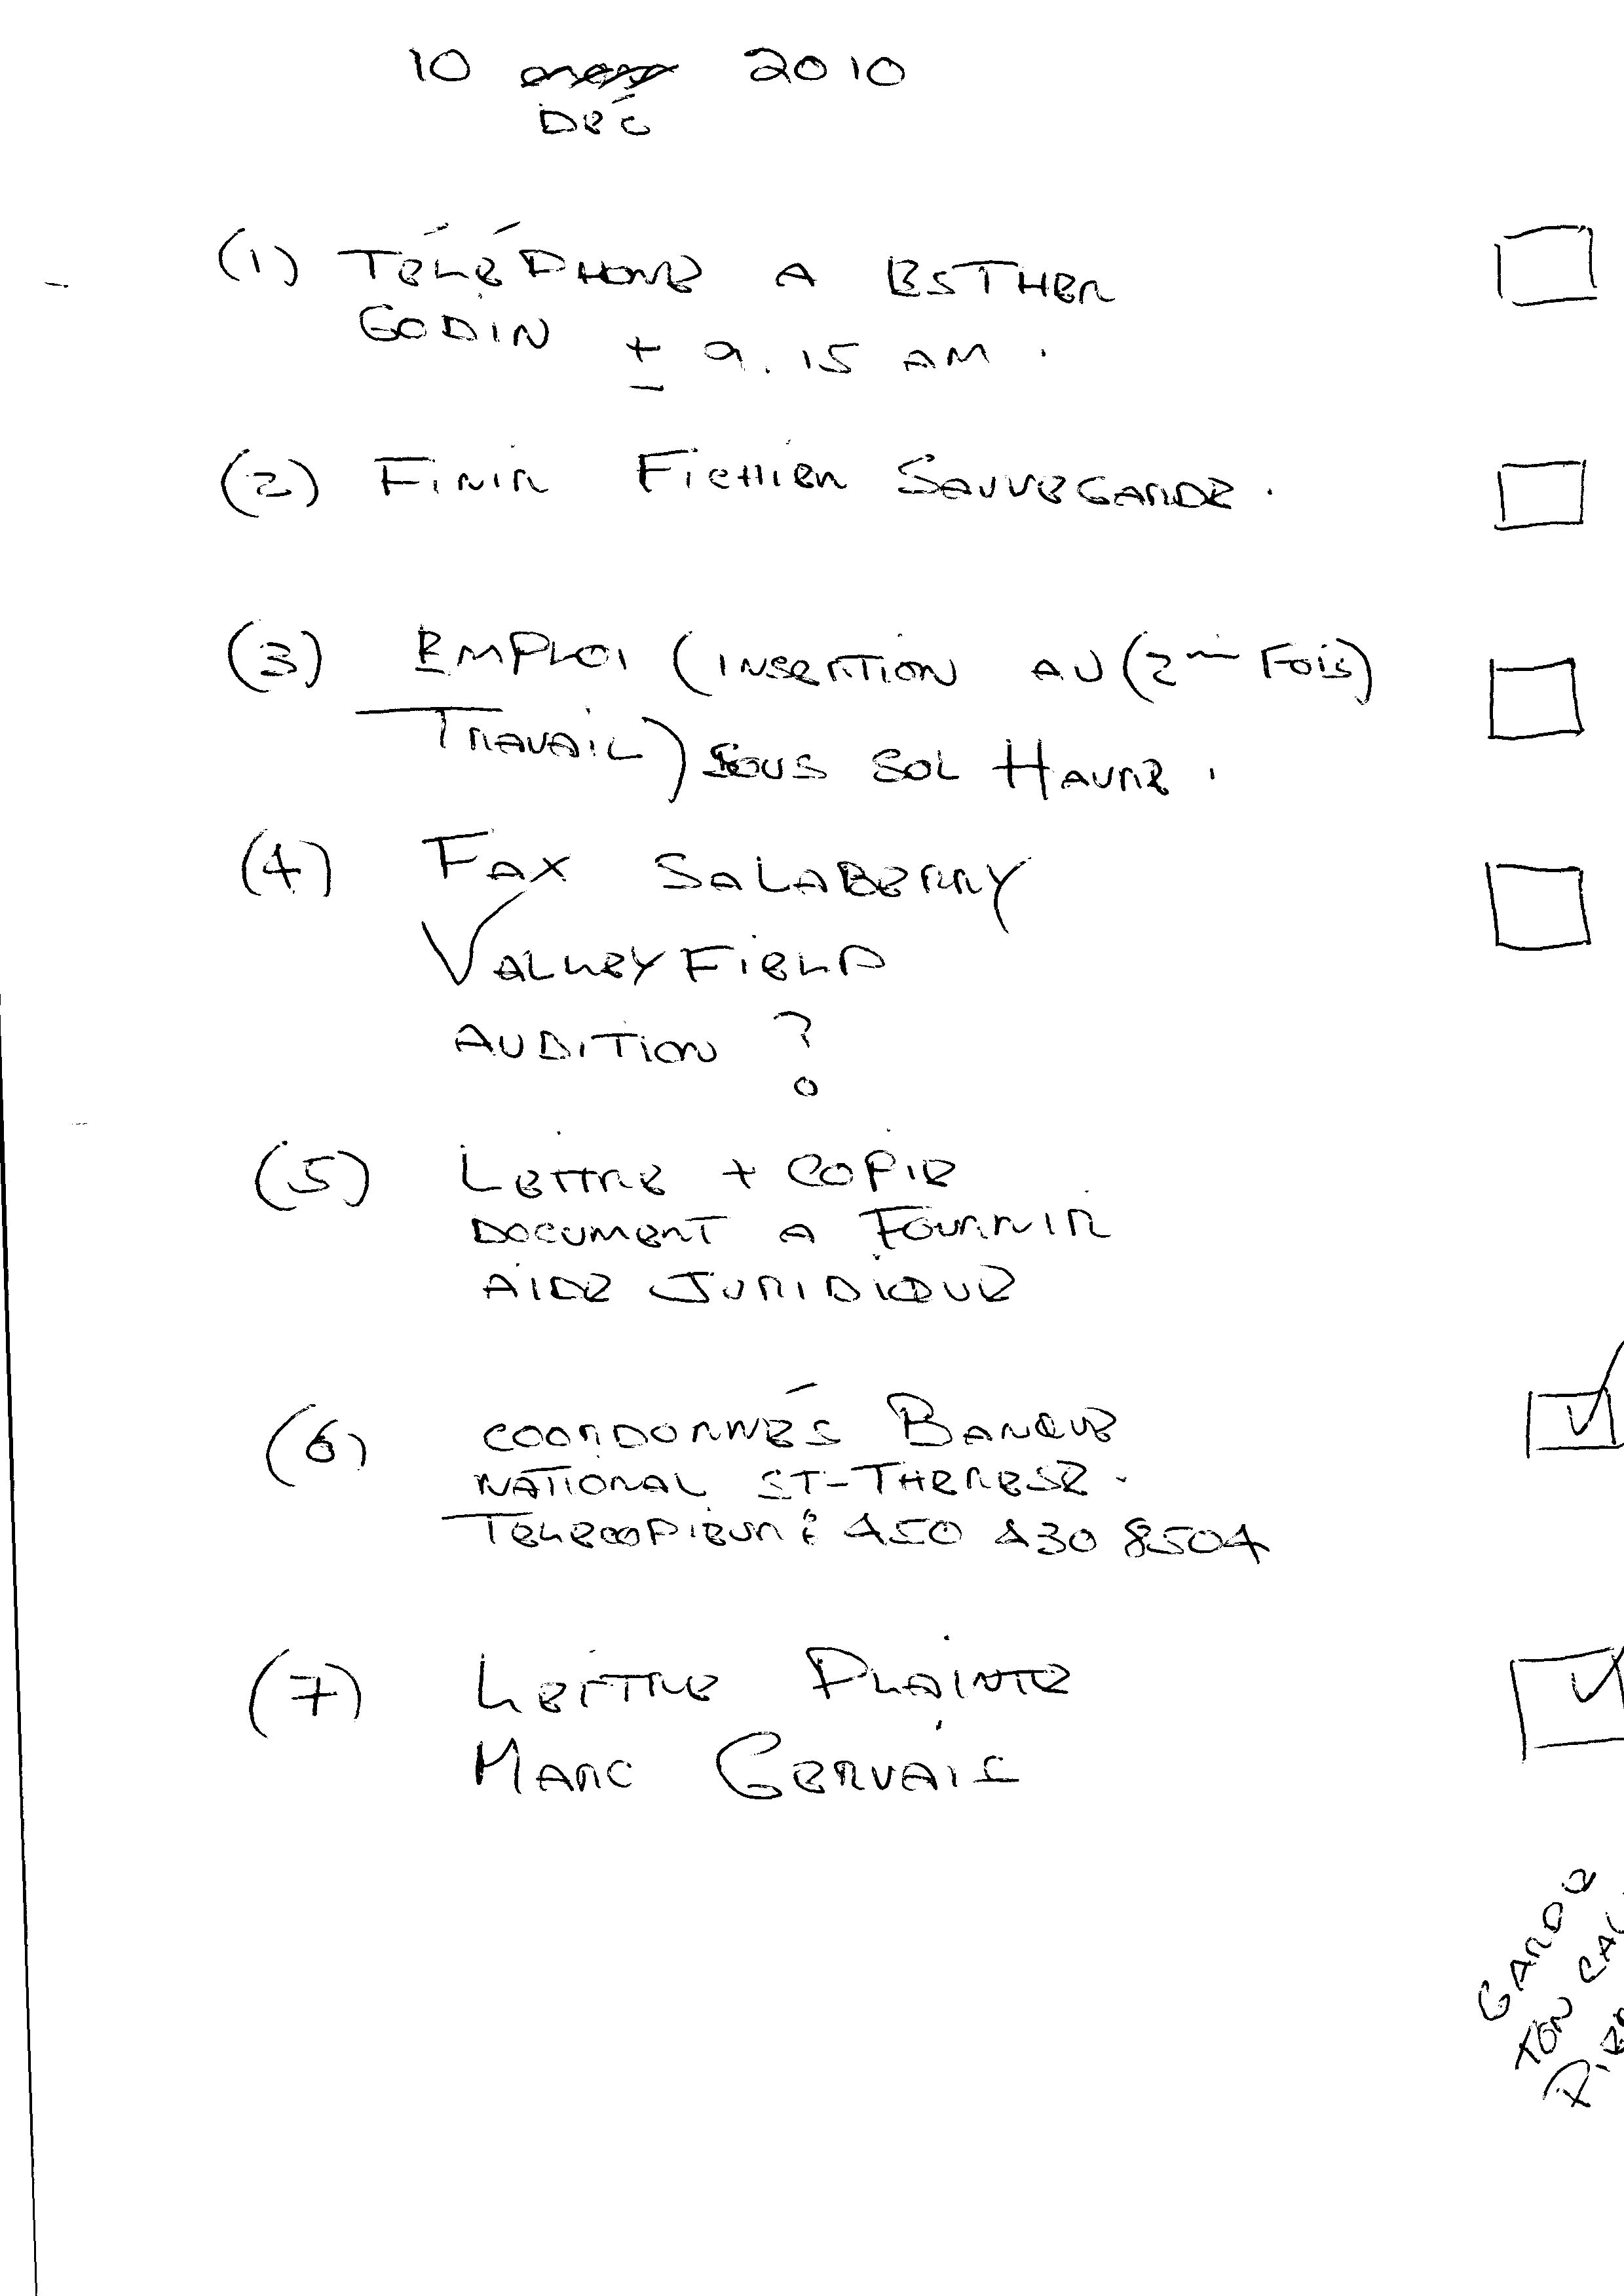 10 2010
DÉC
(1) TÉLÉPHONE A ESTHER
GODIN ± 9.15 AM.
(2) FINIR FICHIER SAUVEGARDE.
(3) EMPLOI (INSERTION AU (2ME FOIS)
TRAVAIL) SOUS SOL HAVRE.
(4) FAX SALABERRY
VALLEYFIELD
AUDITION ?
(5) LETTRE + COPIE
DOCUMENT A FOURNIR
AIDE JURIDIQUE
(6) COORDONNÉS BANQUE
NATIONAL ST-THERESE.
TELECOPIEUR : 450 430 8504
(7) LETTRE PLAINTE
MARC GERVAIS
GARDE
TON